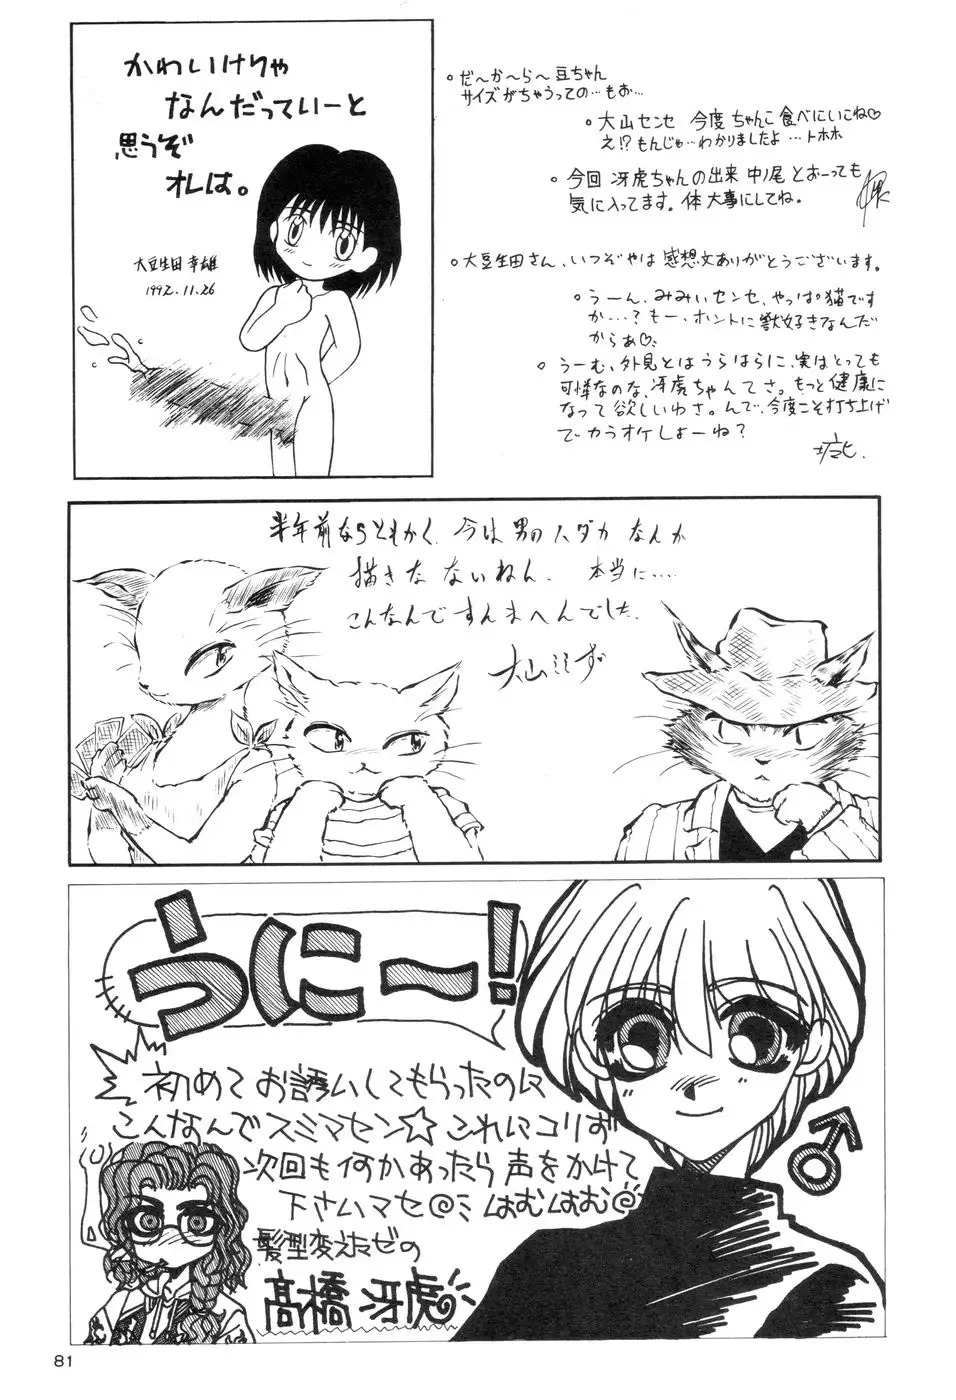 かわいけりゃ
なんだっていーと
思うぞ
オレは。
大豆生田 幸雄
1992.11.26
。だ〜か〜ら〜豆ちゃん
サイズがちゃうっての…もお…
。大山センセ 今度 ちゃんこ 食べにいこね♡
え!?もんじゃ…わかりましたよ …トホホ
。今回 冴虎ちゃんの出来 中ノ尾 とおーっても
気に入ってます。体大事にしてね。
。大豆生田さん、いつぞやは 感想文ありがとうございます。
。うーん、みみぃセンセ、やっぱ猫です
か…?もー、ホントに獣好きなんだ
からぁ♡
。うーむ、外見とはうらはらに、実はとっても
可憐なのな、冴虎ちゃんてさ。もっと健康に
なって欲しいわさ。んで、今度こそ打ち上げ
でカラオケしよーね?
半年前ならともかく、今は男のハダカなんか
描きたないねん、本当に….
こんなんですんまへんでした.
大山みみず
うに〜!
初めてお誘いしてもらったのに
こんなんでスミマセン☆これにコリず
次回も何かあったら声をかけて
下さいマセ@ミはむはむ@
髪型変えたゼの
高橋 冴虎
♂
81